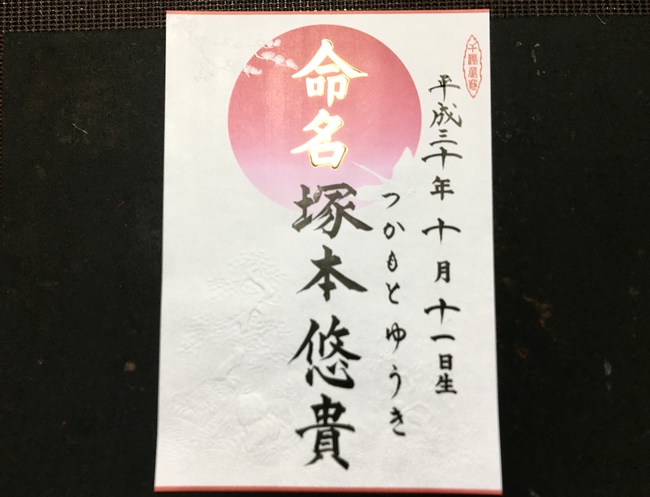 千謌萬寂
平成三十年 十月 十一日生
つかもと ゆうき
命名 塚本悠貴